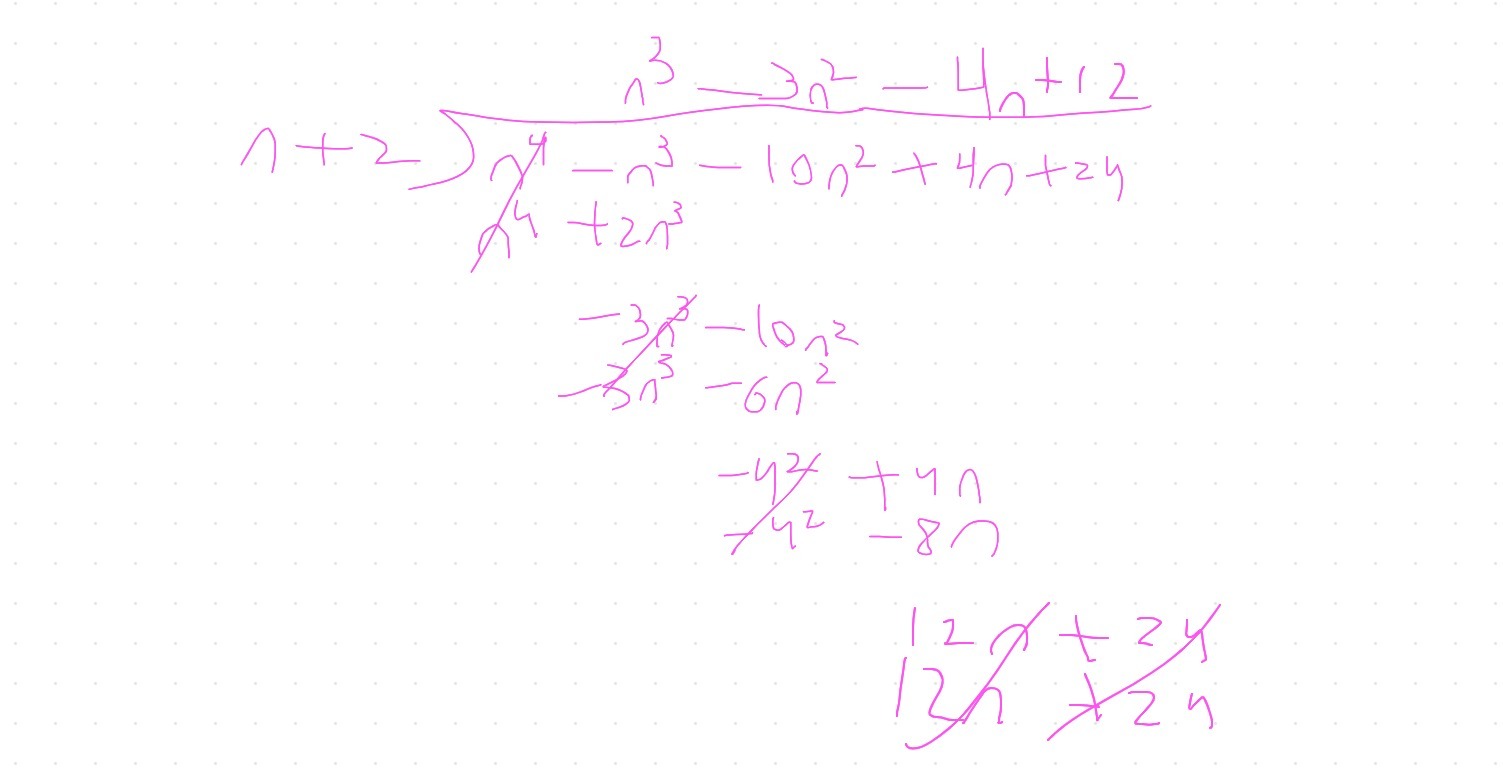 n³ - 3n² - 4n + 12
n + 2 ) n⁴ - n³ - 10n² + 4n + 24
n⁴ + 2n³
-3n³ - 10n²
-3n³ - 6n²
-4² + 4n
-4² - 8n
12n + 24
12n + 24